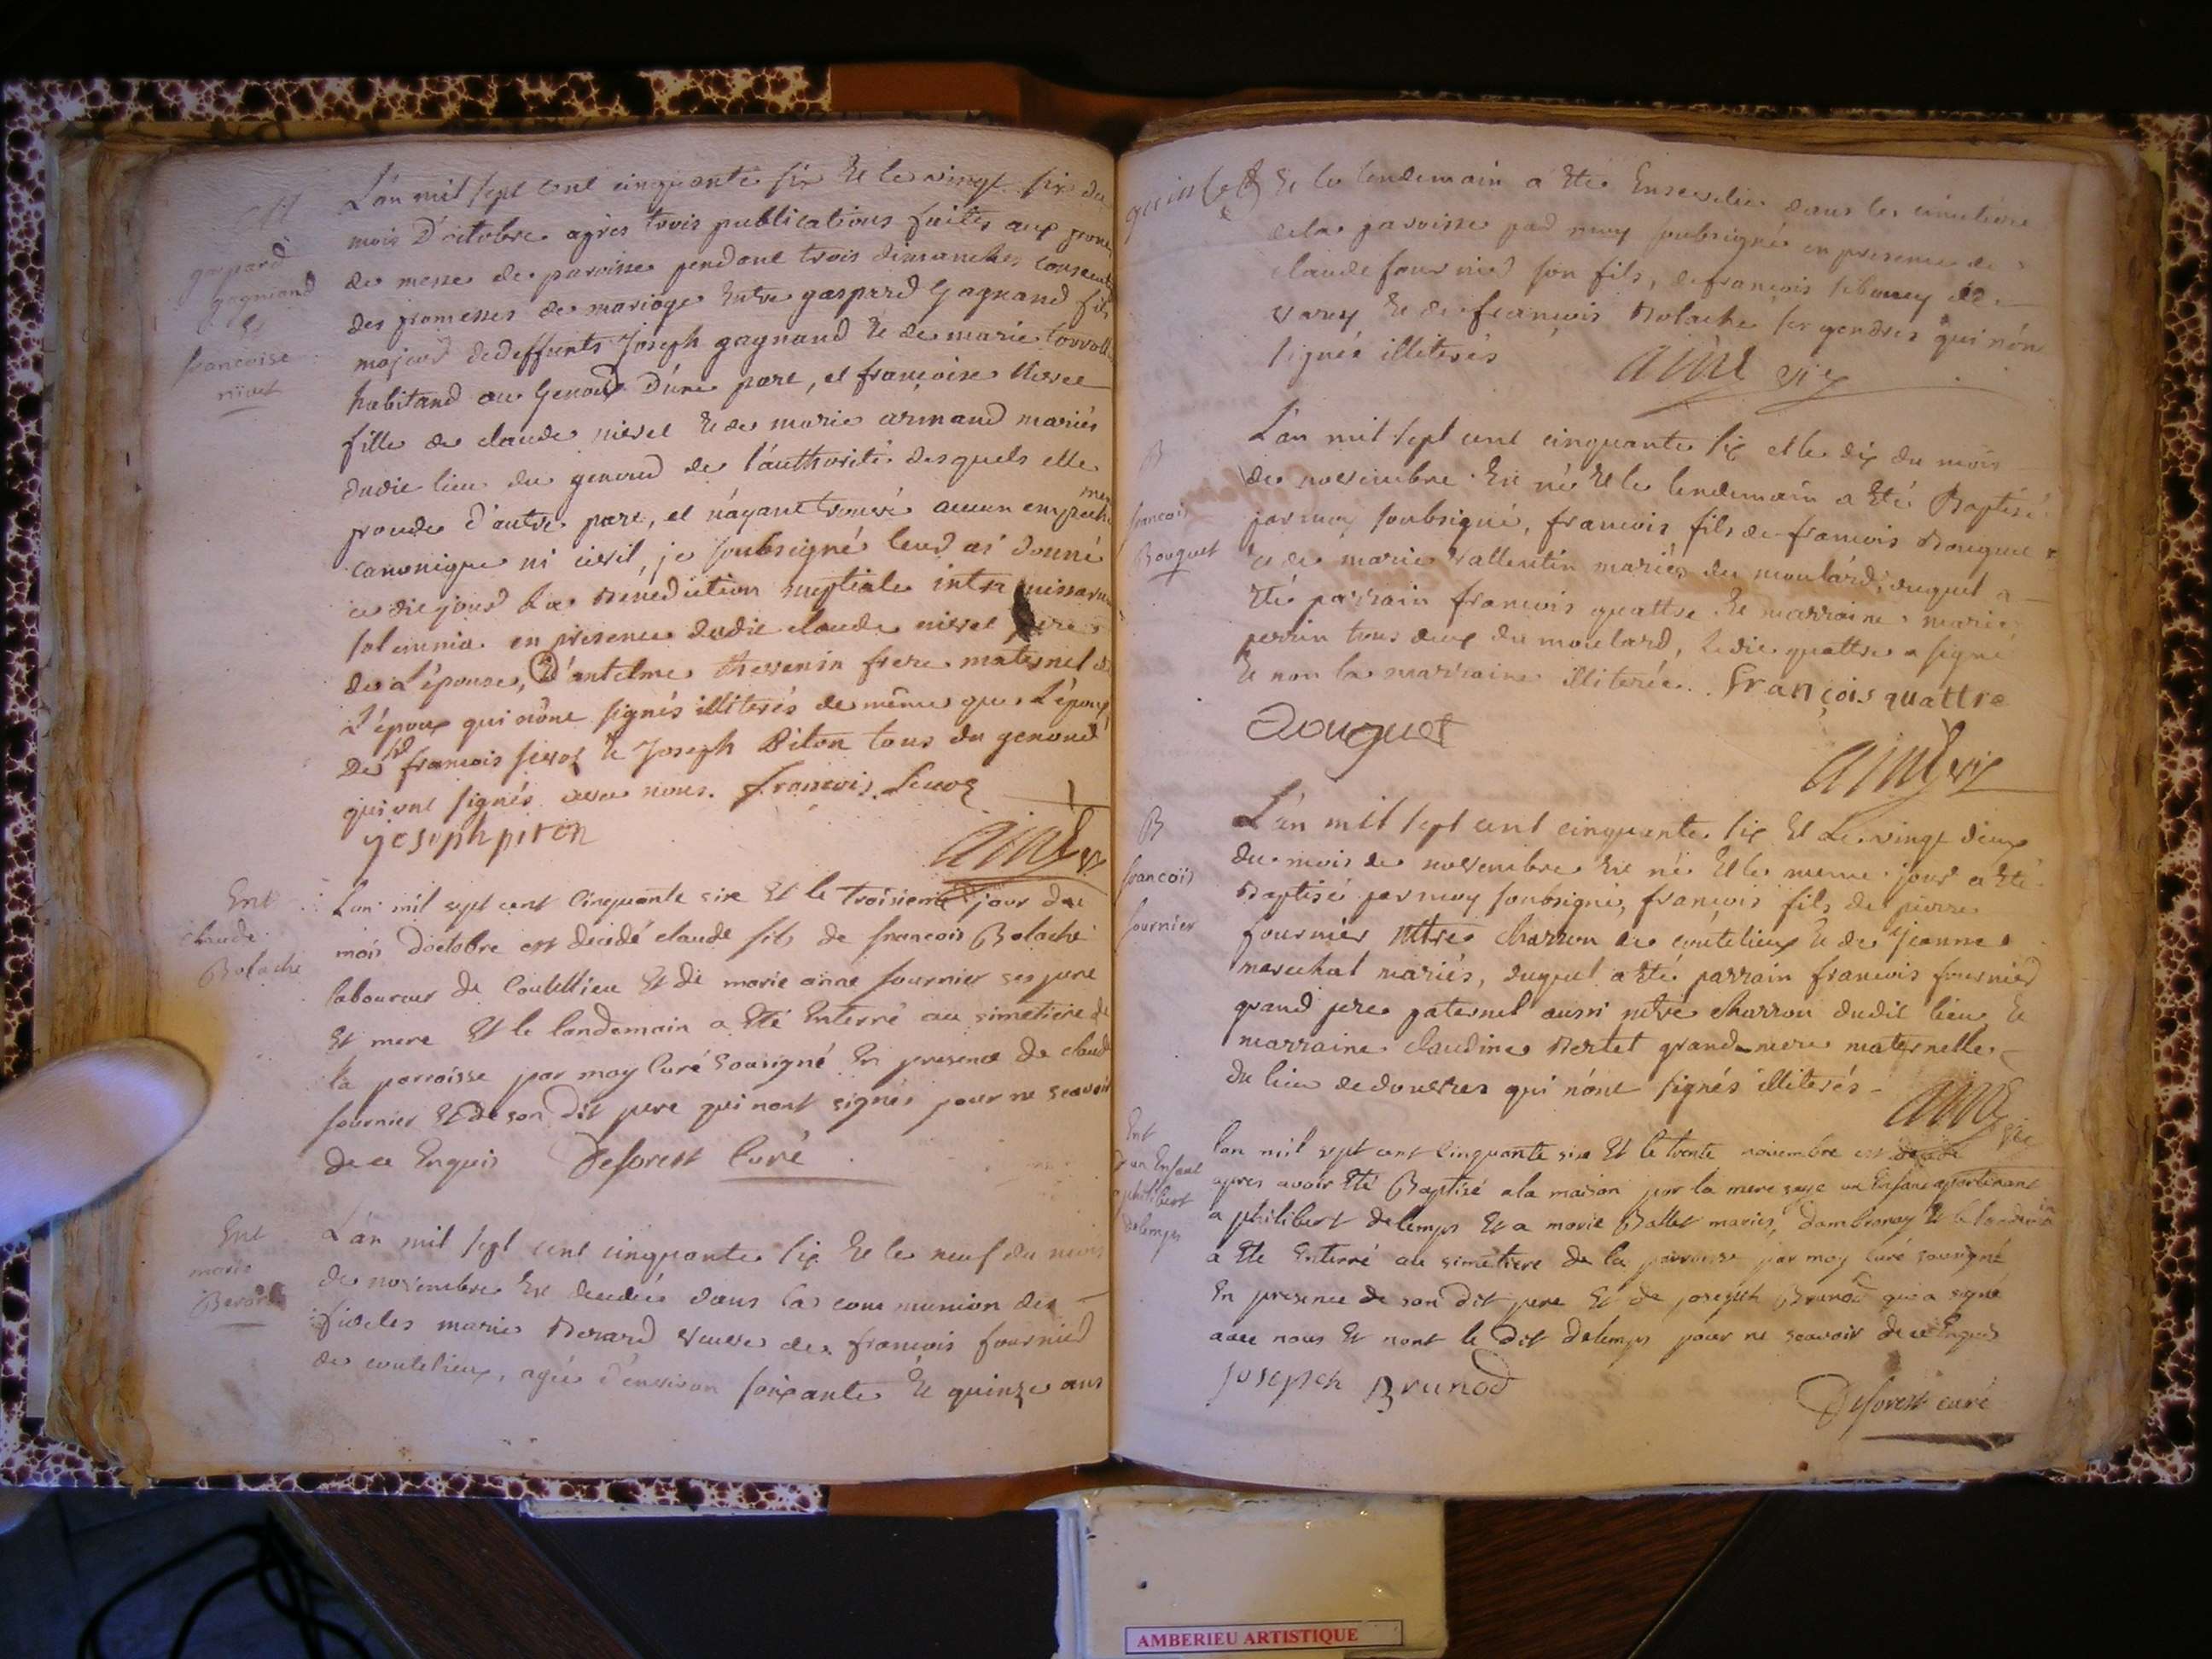 gaspard
gagniand
et
francoise
nivet
L'an mil sept cent cinquante six et le vingt six du
mois d'octobre apres trois publications faites aux prone
de messe de paroisse pendant trois dimanches consecut
des promesses de mariage entre gaspard gagnand fils
majeur de deffunts Joseph gagnand et de marie
habitand au genoud d'une part, et francoise nivet
fille de claude nivet et de marie armand mariés
dudit lieu du genoud de l'authorité desquels elle
procede d'autre part, et n'ayant trouvé aucun empeche
men
canonique ni civil, je soubsigné leur ai donné
ce dit jour la bénédiction nuptiale intra missarum
solemnia en presence dudit claude nivet pere
de l'épouse, d'antelme thevenin frere maternel de
L'époux qui n'ont signés illiterés de même que l'époux
De francois et Joseph piton tous du genoud
qui ont signés avec nous. francois
yoseph piton
aimé vi
Ent
claude
Bolache
L'an mil sept cent Cinquante six Et le troisieme jour du
mois doctobre est decedé claude fils de francois Bolache
laboureur de Coutellieu Et de marie anne fournier ses pere
Et mere Et le landemain a Eté Enterré au simetiere de
la parroisse par moy Curé Sousigné En presence de claude
fournier Et de son dit pere qui nont signés pour ne scavoir
de ce Enquis Deforest Curé
Ent
marie
Berard
L'an mil sept cent cinquante six et le neuf du mois
de novembre est decedée dans la communion des
fideles marie Berard veuve de francois fournier
de coutelieux, agée d'environ soixante et quinze ans
et le lendemain a eté ensevelie dans les cimetiere
de la paroisse par moy soubsigné en presence de
claude fournier son fils, de francois
varey et de francois Bolache ses gendres qui n'ont
signés illiterés aimé vic
B
francois
Bouquet
L'an mil sept cent cinquante six et le dix du mois
de novembre est né et le lendemain a eté Baptisé
par moy soubsigné, francois fils de francois Bouquet
et de marie vallentin mariés du moulard, duquel a
eté parrain francois quattre et marraine marie
perrin tous deux du moulard, ledit quattre a signé
et non la marraine illiterée. François quattre
Bouquet
aimé vic
B
francois
fournier
L'an mil sept cent cinquante six et Le vingt deux
du mois de novembre est né et le meme jour a eté
Baptisé par moy soubsigné, françois fils de pierre
fournier mtre charron de coutelieux et de Jeanne
marechal mariés, duquel a eté parrain francois fournier
grand pere paternel aussi mtre charron dudit lieu et
marraine claudine Bertet grand-mere maternelle
du lieu de douvres qui n'ont signés illiterés
aimé vic
Ent
d'un Enfant
a philibert
delemps
l'an mil sept cent Cinquante six Et le trente novembre est decedé
apres avoir Eté Baptisé a la maison par la mere sage un Enfant apartenant
a philibert delemps Et a marie Ballet mariés, dambronay Et le landemain
a Eté Enterré au simetiere de la parroisse par moy curé sousigné
En presence de son dit pere Et de joseph Brunod qui a signé
avec nous Et nont le dit delemps pour ne scavoir de ce Enquis
Joseph Brunod
Deforest curé
AMBERIEU ARTISTIQUE